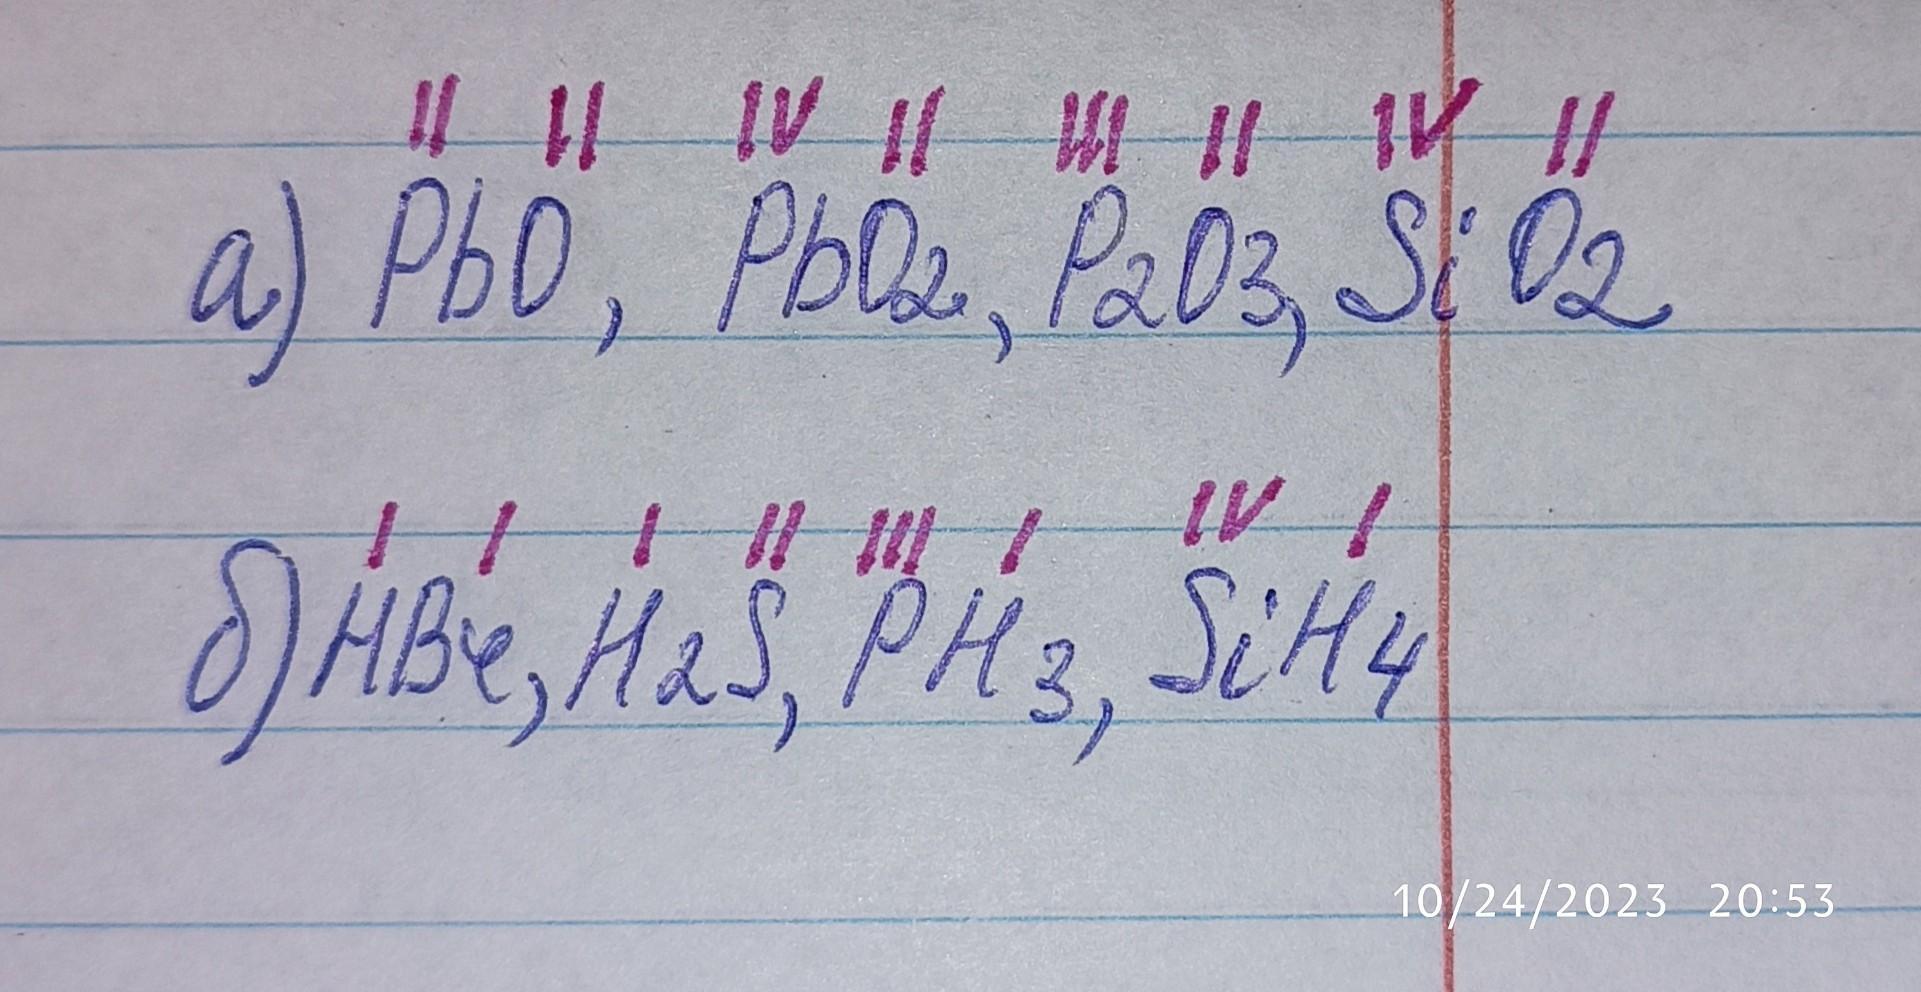 II II IV II III II IV II
а) PbO, PbO2, P2O3, SiO2
I I I II III I IV I
б) HBr, H2S, PH3, SiH4
10/24/2023 20:53